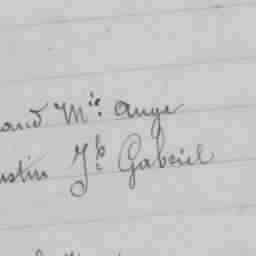 aud Mie. Ange
ustin Jh. Gabriel